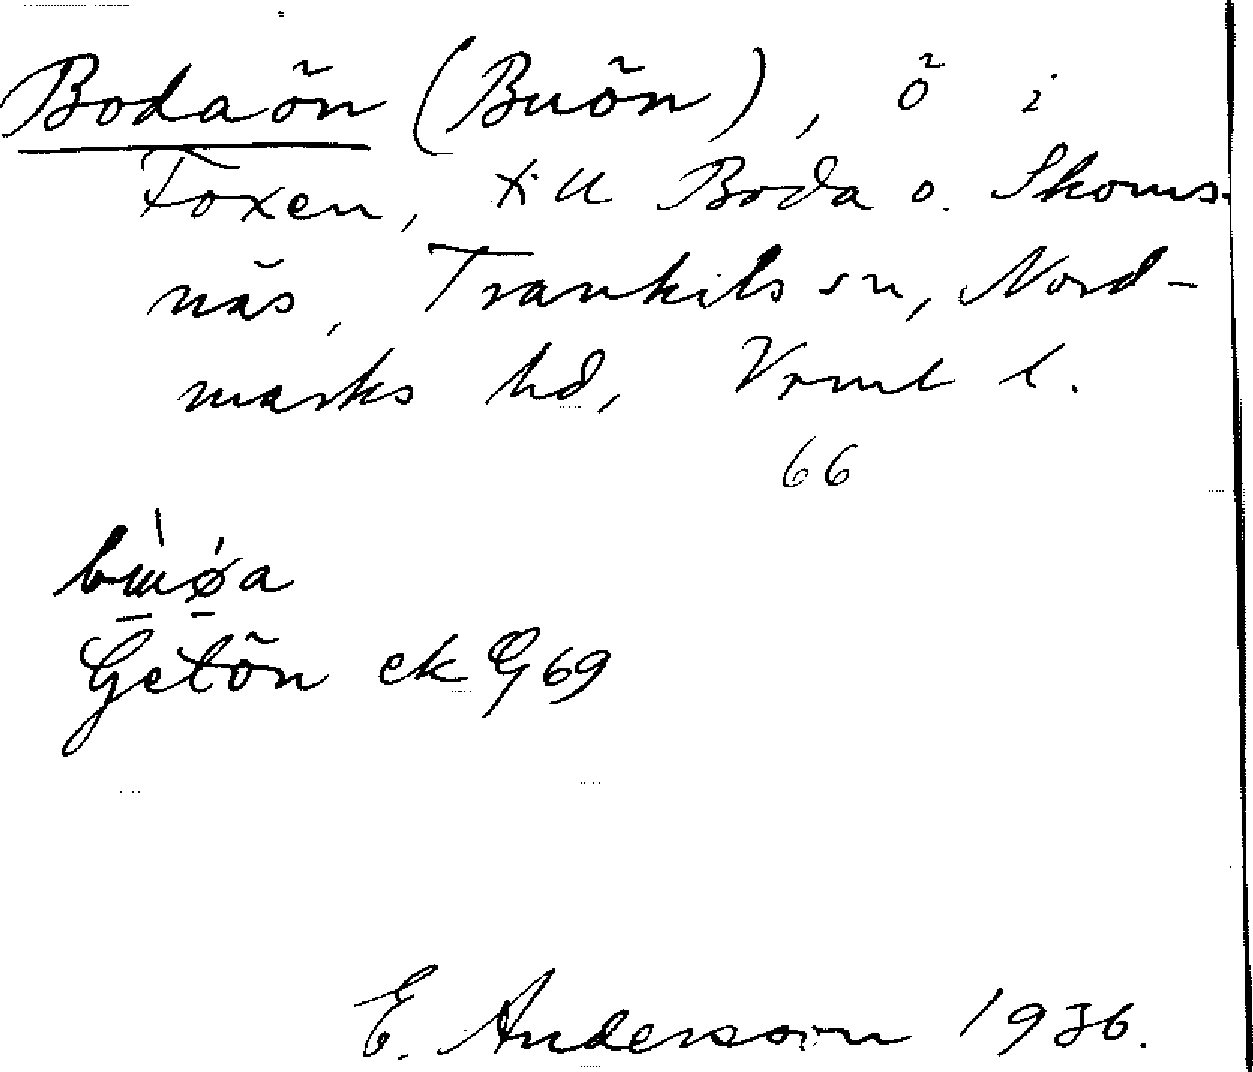 Bodaön (Buön), ö i
Foxen, till Boda o. Skoms-
näs, Trankils sn, Nord-
marks hd, Vrml l.
66
Getön ek G 69
E. Andersson 1936.